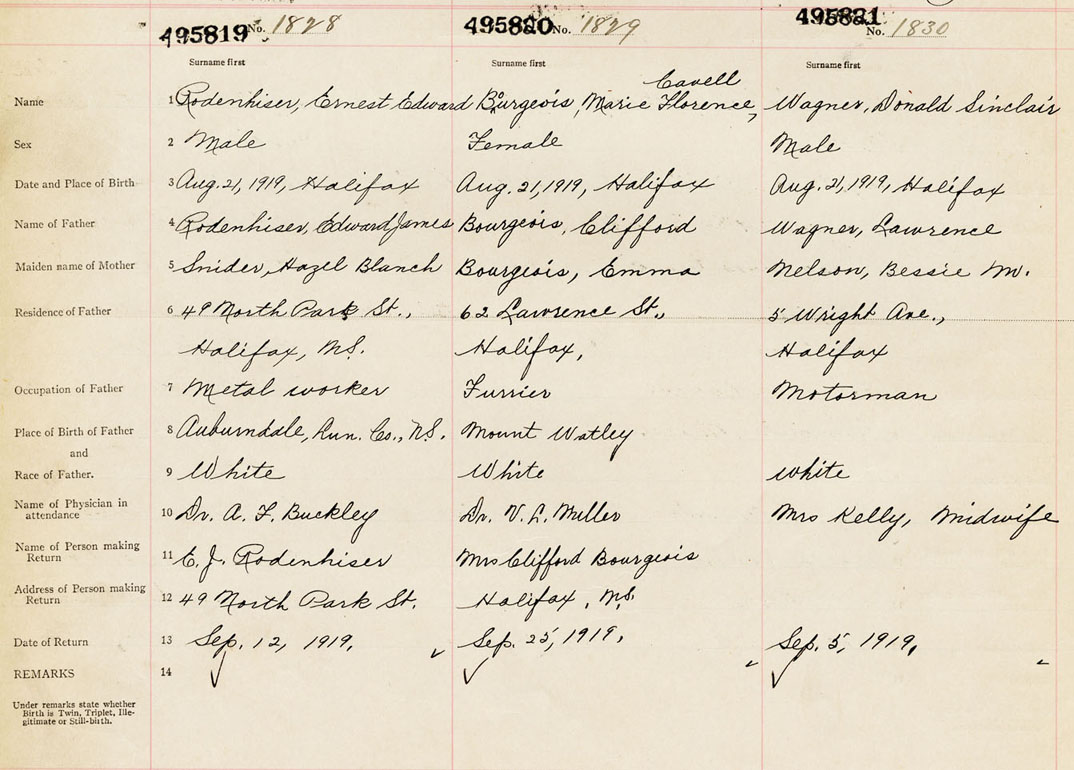 495819 No. 1828 495820 No. 1829 495821 No. 1830
Surname first Surname first Surname first
Cavell
Name 1 Rodenhiser, Ernest Edward Bourgeois, Marie Florence, Wagner, Donald Sinclair
Sex 2 Male Female Male
Date and Place of Birth 3 Aug. 21, 1919, Halifax Aug. 21, 1919, Halifax Aug. 21, 1919, Halifax
Name of Father 4 Rodenhiser, Edward James Bourgeois, Clifford Wagner, Lawrence
Maiden name of Mother 5 Snider, Hazel Blanch Bourgeois, Emma Nelson, Bessie M.
Residence of Father 6 49 North Park St., 62 Lawrence St., 5 Wright Ave.,
Halifax, N.S. Halifax, Halifax
Occupation of Father 7 Metal worker Furrier Motorman
Place of Birth of Father 8 Auburndale, Lun. Co., N.S. Mount Watley
and
Race of Father. 9 White White white
Name of Physician in
attendance 10 Dr. A. F. Buckley Dr. V. L. Miller Mrs Kelly, Midwife
Name of Person making
Return 11 E. J. Rodenhiser Mrs Clifford Bourgeois
Address of Person making
Return 12 49 North Park St. Halifax, N.S.
Date of Return 13 Sep. 12, 1919. Sep. 25, 1919. Sep. 5, 1919.
REMARKS 14
Under remarks state whether
Birth is Twin, Triplet, Ille-
gitimate or Still-birth.